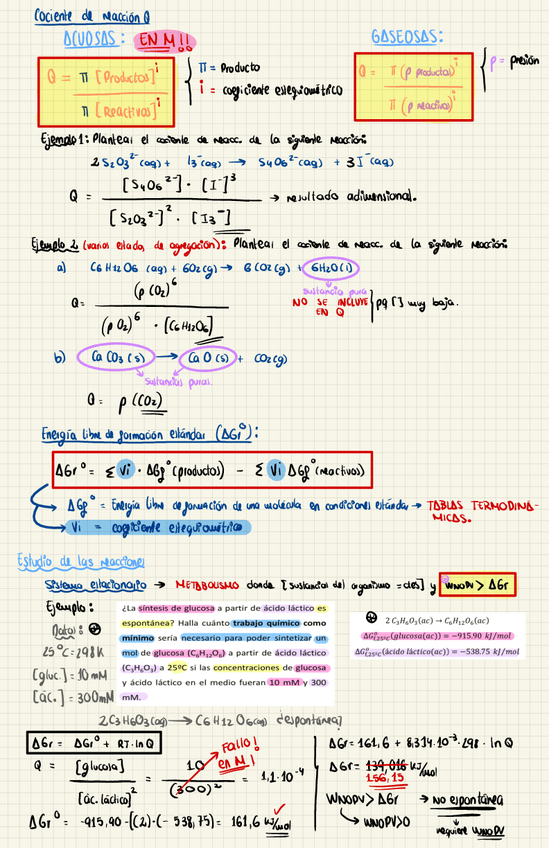 Cociente de reacción Q
ACUOSAS: EN M!!
GASEOSAS:
Q = π [Productos]^i / π [Reactivos]^i
π = Producto
i = coeficiente estequiométrico
Q = π (p productos)^i / π (p reactivos)^i
p = presión
Ejemplo 1: Plantear el cociente de reacc. de la siguiente reacción:
2 S2O3^2- (aq) + I3^- (aq) → S4O6^2- (aq) + 3 I^- (aq)
Q = [S4O6^2-] · [I^-]^3 / [S2O3^2-]^2 · [I3^-] → resultado adimensional.
Ejemplo 2 (varios estados de agregación): Plantear el cociente de reacc. de la siguiente reacción:
a) C6H12O6 (aq) + 6O2 (g) → 6 CO2 (g) + 6H2O (l)
sustancia pura
NO SE INCLUYE EN Q
pq [ ] muy baja.
Q = (p CO2)^6 / (p O2)^6 · [C6H12O6]
b) CaCO3 (s) → CaO (s) + CO2 (g)
Sustancias puras.
Q = p (CO2)
Energía libre de formación estándar (ΔGf°):
ΔGr° = Σ Vi · ΔGf° (productos) - Σ Vi ΔGf° (reactivos)
ΔGf° = Energía libre de formación de una molécula en condiciones estándar → TABLAS TERMODINÁ-
MICAS.
Vi = coeficiente estequiométrico
Estudio de las reacciones
Sistema estacionario → METABOLISMO donde [sustancias del organismo = ctes] y WNOPV > ΔGr
Ejemplo:
¿La síntesis de glucosa a partir de ácido láctico es
espontánea? Halla cuánto trabajo químico como
mínimo sería necesario para poder sintetizar un
mol de glucosa (C6H12O6) a partir de ácido láctico
(C3H6O3) a 25ºC si las concentraciones de glucosa
y ácido láctico en el medio fueran 10 mM y 300
mM.
2 C3H6O3(ac) → C6H12O6(ac)
ΔG°f,25ºC(glucosa(ac)) = -915.90 kJ/mol
ΔG°f,25ºC(ácido láctico(ac)) = -538.75 kJ/mol
Datos:
25ºC = 298K
[gluc.] = 10 mM
[ác.] = 300 mM
2C3H6O3(aq) → C6H12O6(aq) ¿espontánea?
ΔGr = ΔGr° + RT·lnQ
Q = [glucosa] / [ác. láctico]^2 = 10 / (300)^2 = 1,1·10^-4
Fallo! en M!
ΔGr° = -915,90 - [(2)·(-538,75)] = 161,6 kJ/mol
ΔGr = 161,6 + 8,314·10^-3·298 · ln Q
ΔGr = 139,016 kJ/mol
156,15
WNOPV > ΔGr → No espontánea
WNOPV > 0
requiere WNOPV